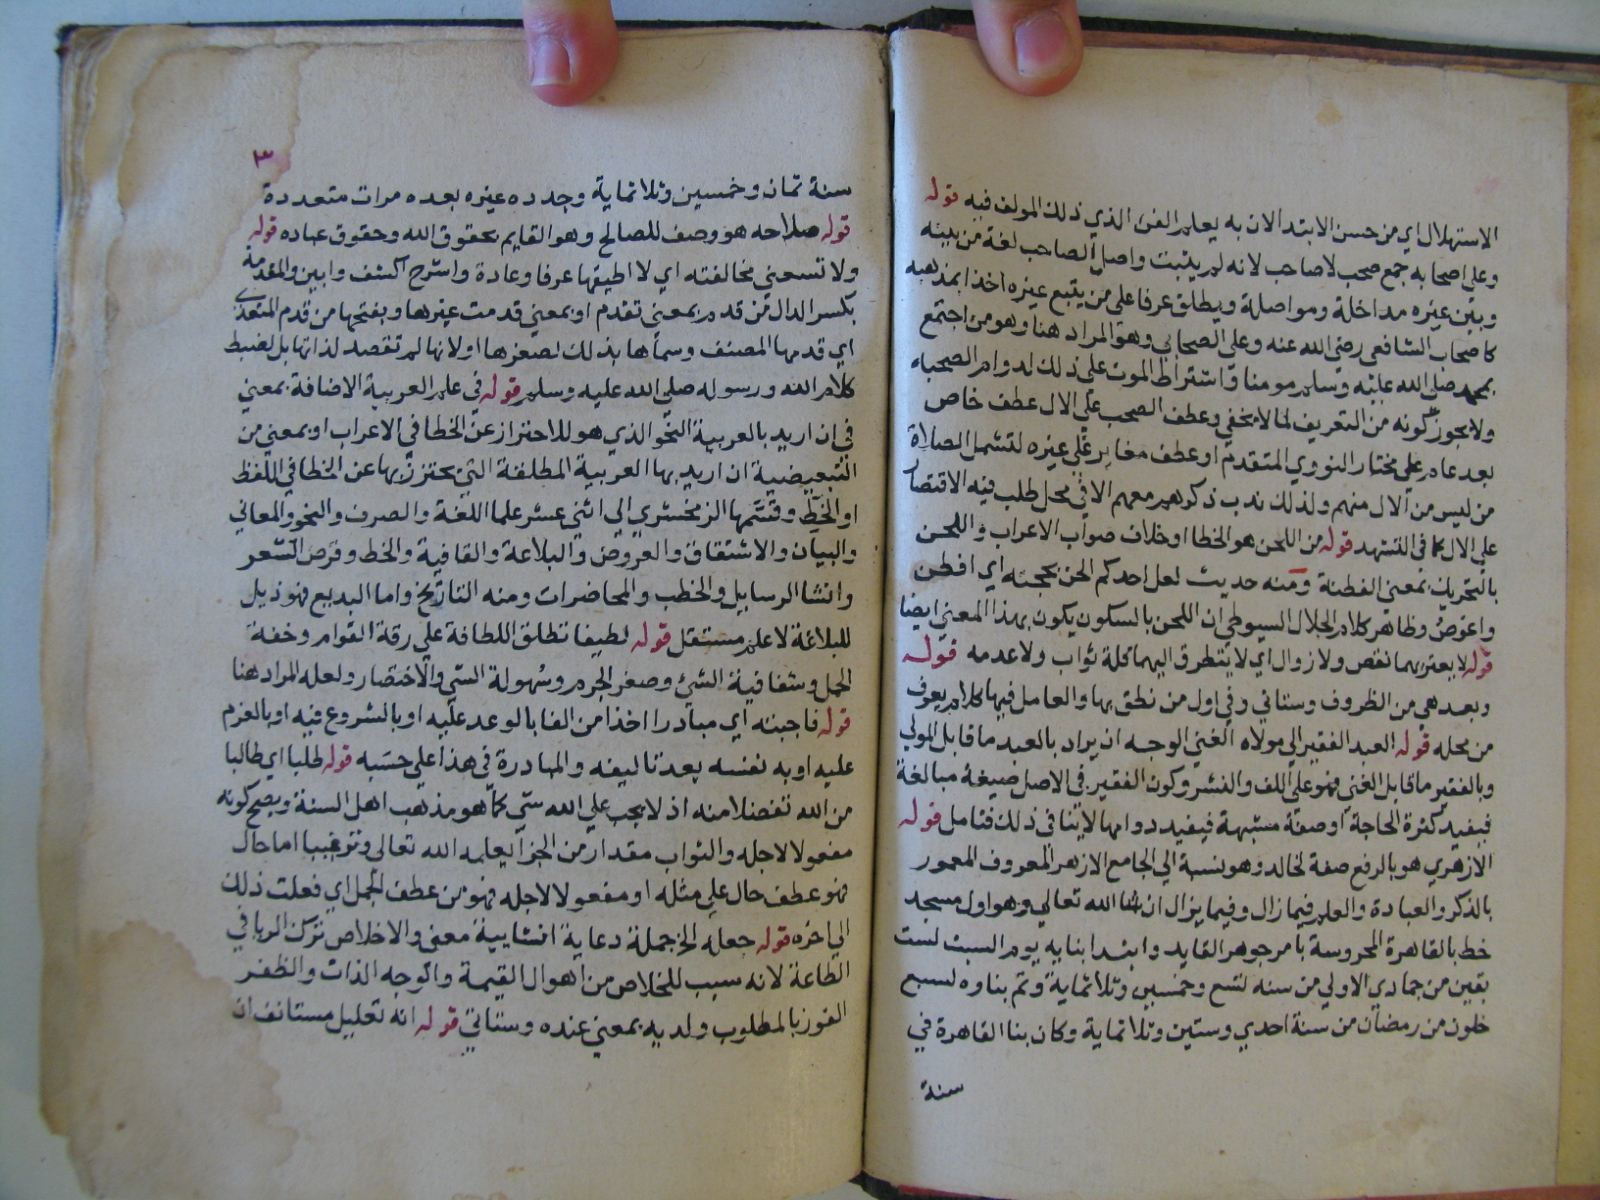 الاستهلال اي من حسن الابتدا لان به يعلم الفن الذي ذلك المولف فيه قوله
وعلى اصحابه جمع صحب لا صاحب لانه لم يثبت واصل الصاحب لغة من بينه
وبين غيره مداخلة ومواصلة ويطلق عرفا على من يتبع غيره اخذا بمذهبه
كاصحاب الشافعي رضي الله عنه وعلى الصحابي وهو المراد هنا وهو من اجتمع
بمحمد صلى الله عليه وسلم مومنا واشتراط الموت على ذلك لدوام الصحبة
ولا يجوز كونه من التعريف لما لا يخفى وعطف الصحب على الال عطف خاص
بعد عام على مختار النووي المتقدم او عطف مغاير على غيره لتشمل الصلاة
من ليس من الال منهم ولذلك ندب ذكرهم معهم الا في محل طلب فيه الاقتصار
على الال كما في التشهد قوله من اللحن هو الخطا او خلاف صواب الاعراب واللحن
بالتحريك بمعنى الفطنة ومنه حديث لعل احدكم الحن بحجته اي افطن
واغوص وظاهر كلام الجلال السيوطي ان اللحن بالسكون يكون بهذا المعنى ايضا
قوله لا يعتريهما نقص ولا زوال اي لا يتطرق اليهما قلة ثواب ولا عدمه قوله
وبعد هي من الظروف وستاتي وفي اول من نطق بها والعامل فيها كلام يعرف
من محله قوله العبد الفقير الي مولاه الغني الوجه ان يراد بالعبد ما قابل المولي
وبالفقير ما قابل الغني فهو على اللف والنشر وكون الفقير في الاصل صيغة مبالغة
فيفيد كثرة الحاجة او صفة مشبهة فيفيد دوامها لا ينافي ذلك فتامل قوله
الازهري هو بالرفع صفة لخالد وهو نسبة الي الجامع الازهر المعروف المعمور
بالذكر والعبادة والعلم فيما زال وفيما يزال ان شا الله تعالي وهو اول مسجد
خط بالقاهرة المحروسة بامر جوهر القايد وابتدا بنايه يوم السبت لست
بقين من جمادي الاولي من سنه لتسع وخمسين وثلاثماية وتم بناوه لسبع
خلون من رمضان من سنة احدي وستين وثلاثماية وكان بنا القاهرة في
سنة
٣
سنة ثمان وخمسين وثلاثماية وجدده غيره بعده مرات متعددة
قوله صلاحه هو وصف للصالح وهو القايم بحقوق الله وحقوق عباده قوله
ولا تسعني مخالفته اي لا اطيقها عرفا وعادة واشرح اكشف وابين والمقدمة
بكسر الدال من قدم بمعنى تقدم او بمعنى قدمت غيرها وبفتحها من قدم المتعدي
اي قدمها المصنف وسماها بذلك لصغرها او لانها لم تقصد لذاتها بل لضبط
كلام الله ورسوله صلى الله عليه وسلم قوله في علم العربية الاضافة بمعنى
في ان اريد بالعربية النحو الذي هو للاحتراز عن الخطا في الاعراب او بمعنى من
التبعيضية ان اريد بها العربية المطلقة التي يحترز بها عن الخطا في اللفظ
او الخط وقسمها الزمخشري الي اثني عشر علما اللغة والصرف والنحو والمعاني
والبيان والاشتقاق والعروض والبلاغة والقافية والخط وقرض الشعر
وانشا الرسايل والخطب والمحاضرات ومنه التاريخ واما البديع فهو ذيل
للبلاغة لا علم مستقل قوله لطيفا تطلق اللطافة على رقة القوام وخفة
الحمل وشفافية الشئ وصغر الجرم وسهولة الشي والاختصار ولعله المراد هنا
قوله فاجبته اي مبادرا اخذا من الفا بالوعد عليه او بالشروع فيه او بالعزم
عليه او به نفسه بعد تاليفه والمبادرة في هذا على حسبه قوله طلبا اي طالبا
من الله تفضلا منه اذ لا يجب على الله شي كما هو مذهب اهل السنة ويصح كونه
مفعولا لاجله والثواب مقدار من الجزا يعلمه الله تعالى وترغيبا اما حال
فهو عطف حال على مثله او مفعولا لاجله فهو من عطف الجمل اي فعلت ذلك
الي اخره قوله جعله الخ جملة دعاية انشايية معنى والاخلاص ترك الريا في
الطاعة لانه سبب للخلاص من اهوال القيمة والوجه الذات والظفر
الفوز بالمطلوب ولديه بمعنى عنده وستاتي قوله انه تعليل مستانف ان